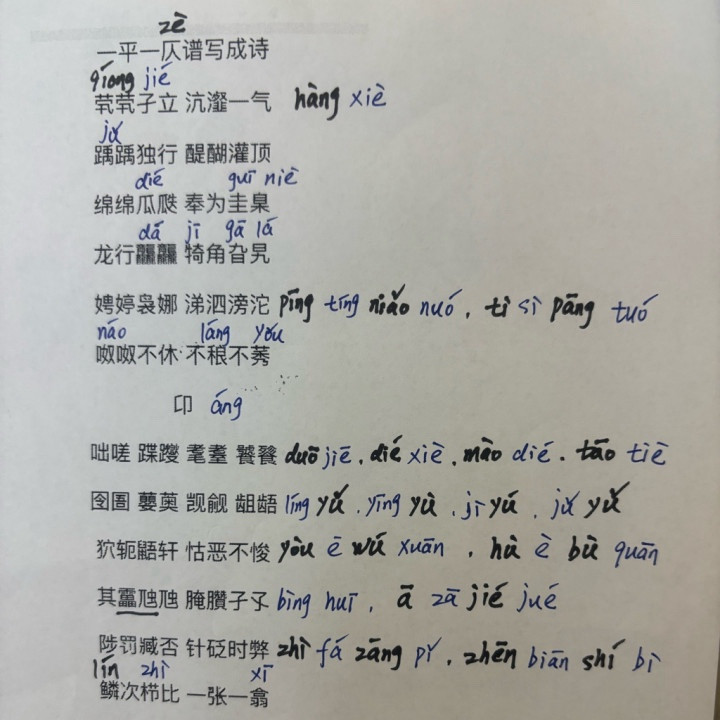 zè
一平一仄谱写成诗
qióng jié
茕茕孑立 沆瀣一气 hàng xiè
jǔ
踽踽独行 醍醐灌顶
dié guī niè
绵绵瓜瓞 奉为圭臬
dá jī gā lá
龙行龘龘 犄角旮旯
娉婷袅娜 涕泗滂沱 pīng tíng niǎo nuó, tì sì pāng tuó
náo láng yǒu
呶呶不休 不稂不莠
卬 áng
咄嗟 蹀躞 耄耋 饕餮 duō jiē, dié xiè, mào dié. tāo tiè
囹圄 蘡薁 觊觎 龃龉 líng yǔ, yīng yù, jì yú, jǔ yǔ
狖轭鼯轩 怙恶不悛 yòu è wú xuān, hù è bù quān
其靐虺虺 腌臜孑孓 bìng huī, ā zā jié jué
陟罚臧否 针砭时弊 zhì fá zāng pǐ, zhēn biān shí bì
lín zhì xī
鳞次栉比 一张一翕